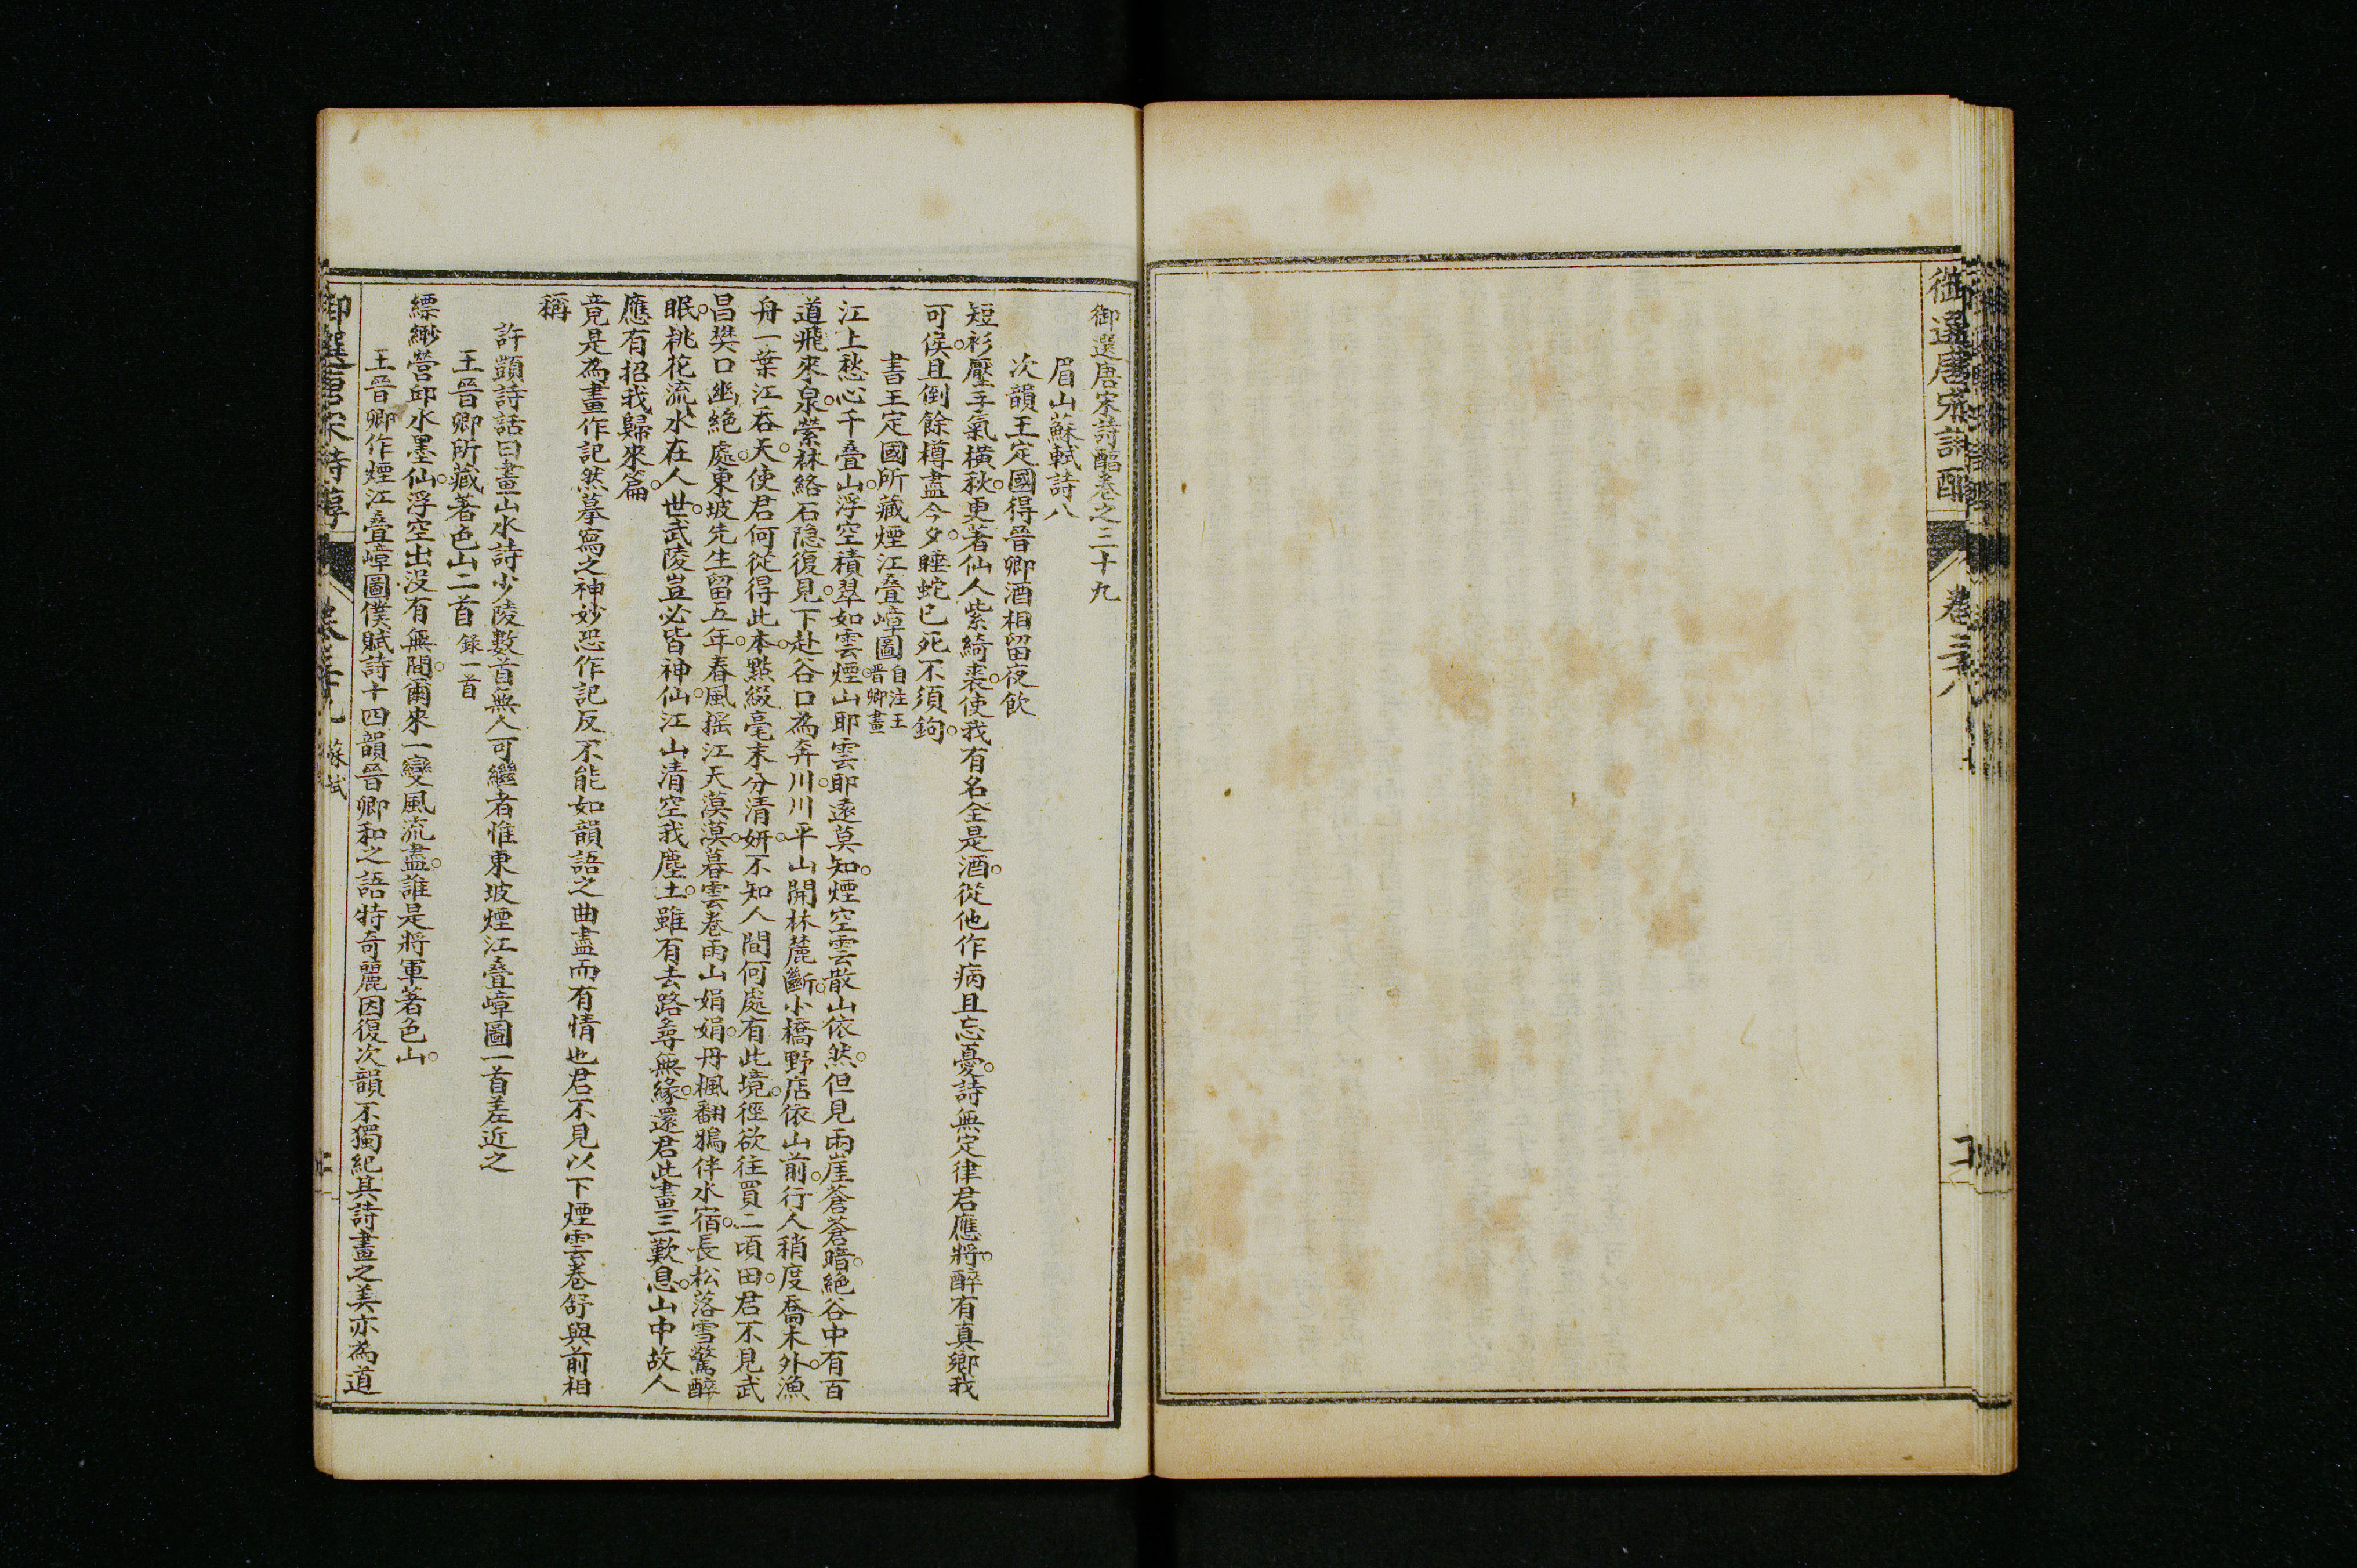 御選唐宋詩醇
卷三十八
御選唐宋詩醇卷之三十九
眉山蘇軾詩八
次韻王定國得晉卿酒相留夜飲
短衫壓手氣橫秋更著仙人紫綺裘使我有名全是酒從他作病且忘憂詩無定律君應將醉有真鄉我
可侯且倒餘樽盡今夕睡蛇已死不須鉤
書王定國所藏煙江疊嶂圖自注王晉卿畫
江上愁心千疊山浮空積翠如雲煙山耶雲耶遠莫知煙空雲散山依然但見兩崖蒼蒼暗絕谷中有百
道飛來泉縈林絡石隱復見下赴谷口為奔川川平山開林麓斷小橋野店依山前行人稍度喬木外漁
舟一葉江吞天使君何從得此本點綴毫末分清妍不知人間何處有此境徑欲往買二頃田君不見武
昌樊口幽絕處東坡先生留五年春風搖江天漠漠暮雲卷雨山娟娟丹楓翻鴉伴水宿長松落雪驚醉
眠桃花流水在人世武陵豈必皆神仙江山清空我塵土雖有去路尋無緣還君此畫三歎息山中故人
應有招我歸來篇
竟是為畫作記然摹寫之神妙恐作記反不能如韻語之曲盡而有情也君不見以下煙雲卷舒與前相
稱
許顗詩話曰畫山水詩少陵數首無人可繼者惟東坡煙江疊嶂圖一首差近之
王晉卿所藏著色山二首錄一首
縹緲營邱水墨仙浮空出沒有無間爾來一變風流盡誰是將軍著色山
王晉卿作煙江疊嶂圖僕賦詩十四韻晉卿和之語特奇麗因復次韻不獨紀其詩畫之美亦為道
御選唐宋詩醇
卷三十九
蘇軾